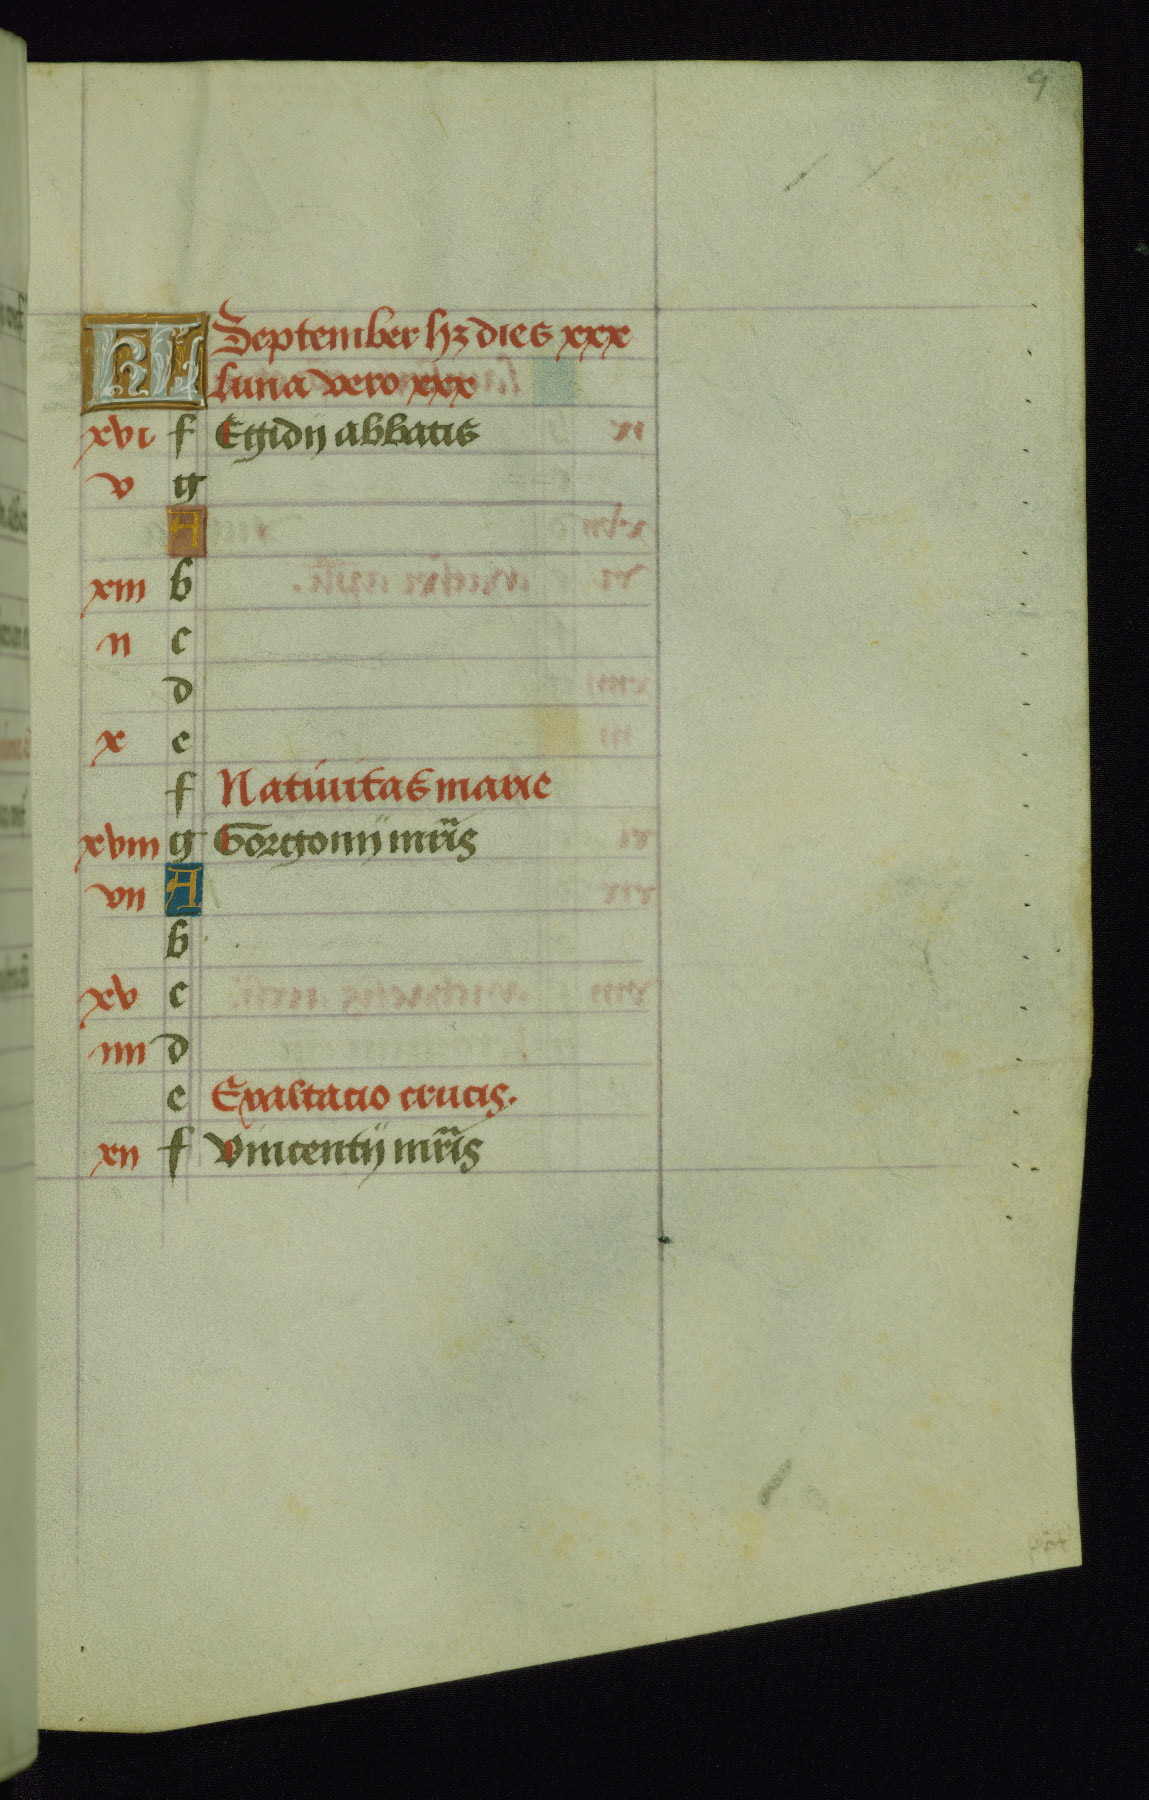 9
KL September hz dies xxx
luna vero xxx
xvi f Egidij abbatis
v g
A
xiii b
ii c
d
x e
f Nativitas marie
xviii g Gorgonij mris
vii A
b
xv c
iiii d
e Exaltacio crucis.
xii f Vincentij mris